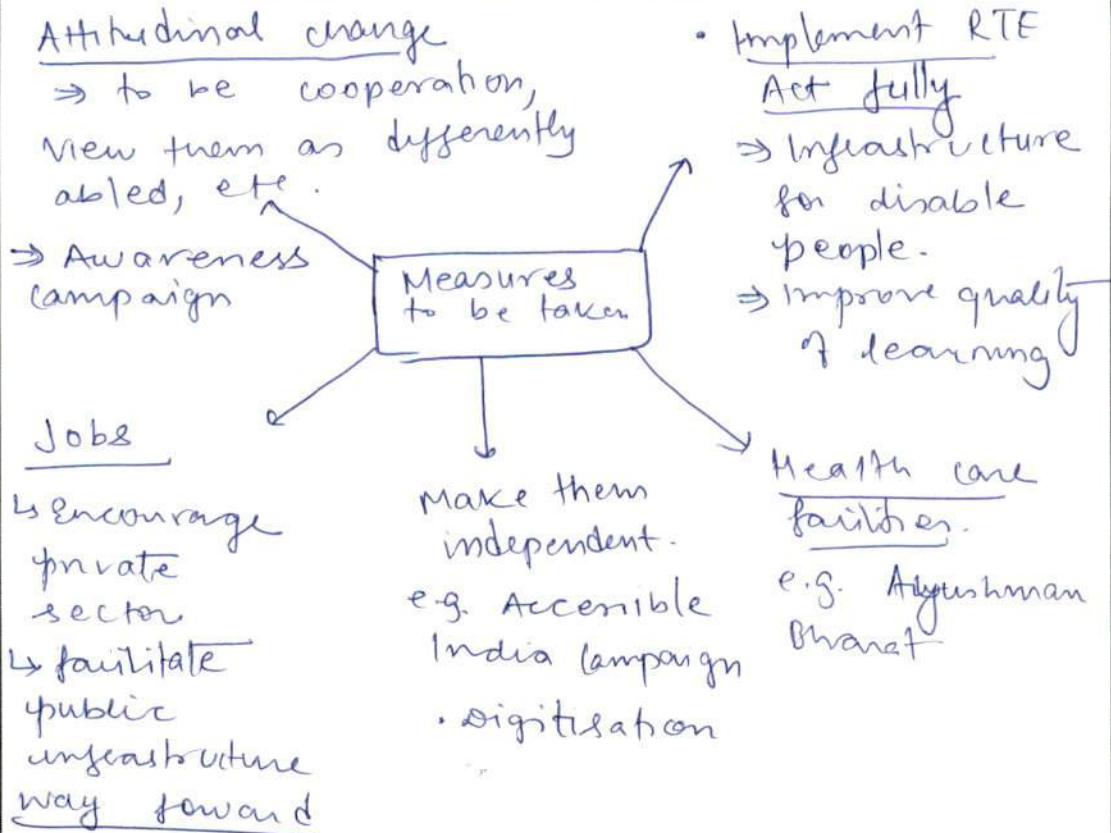 Attitudinal change
⇒ to be cooperation,
view them as differently
abled, etc.
⇒ Awareness
campaign
• Implement RTE
Act fully
⇒ Infrastructure
for disable
people.
⇒ Improve quality
of learning
Measures
to be taken
Jobs
↳ Encourage
private
sector
↳ facilitate
public
infrastructure
Make them
independent.
e.g. Accessible
India Campaign
• Digitisation
Health care
facilities.
e.g. Ayushman
Bharat
way forward